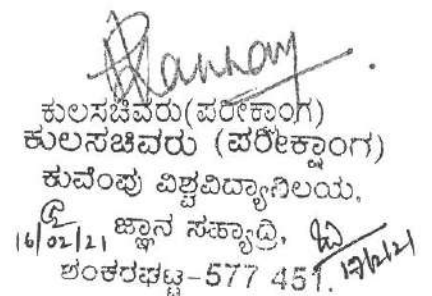 ಕುಲಸಚಿವರು(ಪರೀಕ್ಷಾಂಗ)
ಕುಲಸಚಿವರು (ಪರೀಕ್ಷಾಂಗ)
ಕುವೆಂಪು ವಿಶ್ವವಿದ್ಯಾನಿಲಯ,
16/02/21 ಜ್ಞಾನ ಸಹ್ಯಾದ್ರಿ,
ಶಂಕರಘಟ್ಟ-577 451. 17/2/21